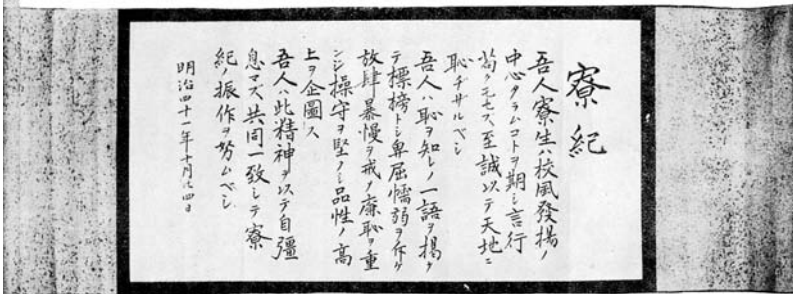 寮紀
吾人寮生ハ校風發揚ノ
中心タラムコトヲ期シ言行
苟クモセス至誠以テ天地ニ
恥チサルベシ
吾人ハ恥ヲ知レノ一語ヲ揚ケ
テ標榜トシ卑屈懦弱ヲ斥ケ
放肆暴慢ヲ戒メ廉恥ヲ重
ンジ操守ヲ堅クシ品性ノ高
上ヲ企圖ス
吾人ハ此精神ヲ以テ自彊
息マズ共同一致シテ寮
紀ノ振作ヲ努ムベシ
明治四十一年十月廿四日